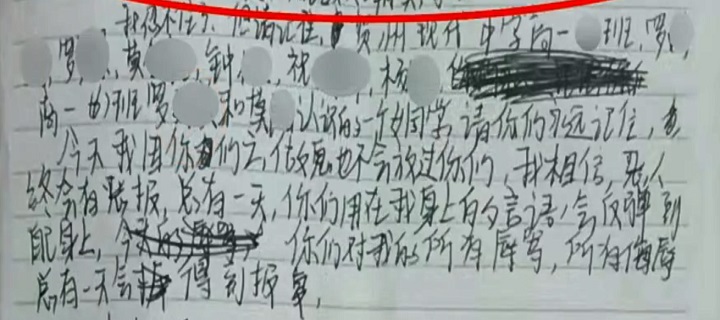 但请记住,贵州现代中学高一 班,罗 ,
罗 、莫 、钟 、祝 、杨
高一 班罗 和莫 认识的一个女同学,请你们永远记住,
今天我因你们 做鬼也不会放过你们,我相信,恶人
终会有恶报,总有一天,你们用在我身上的言语,会反弹到
身上, 你们对我的所有辱骂,所有侮辱
总有一天会得到报